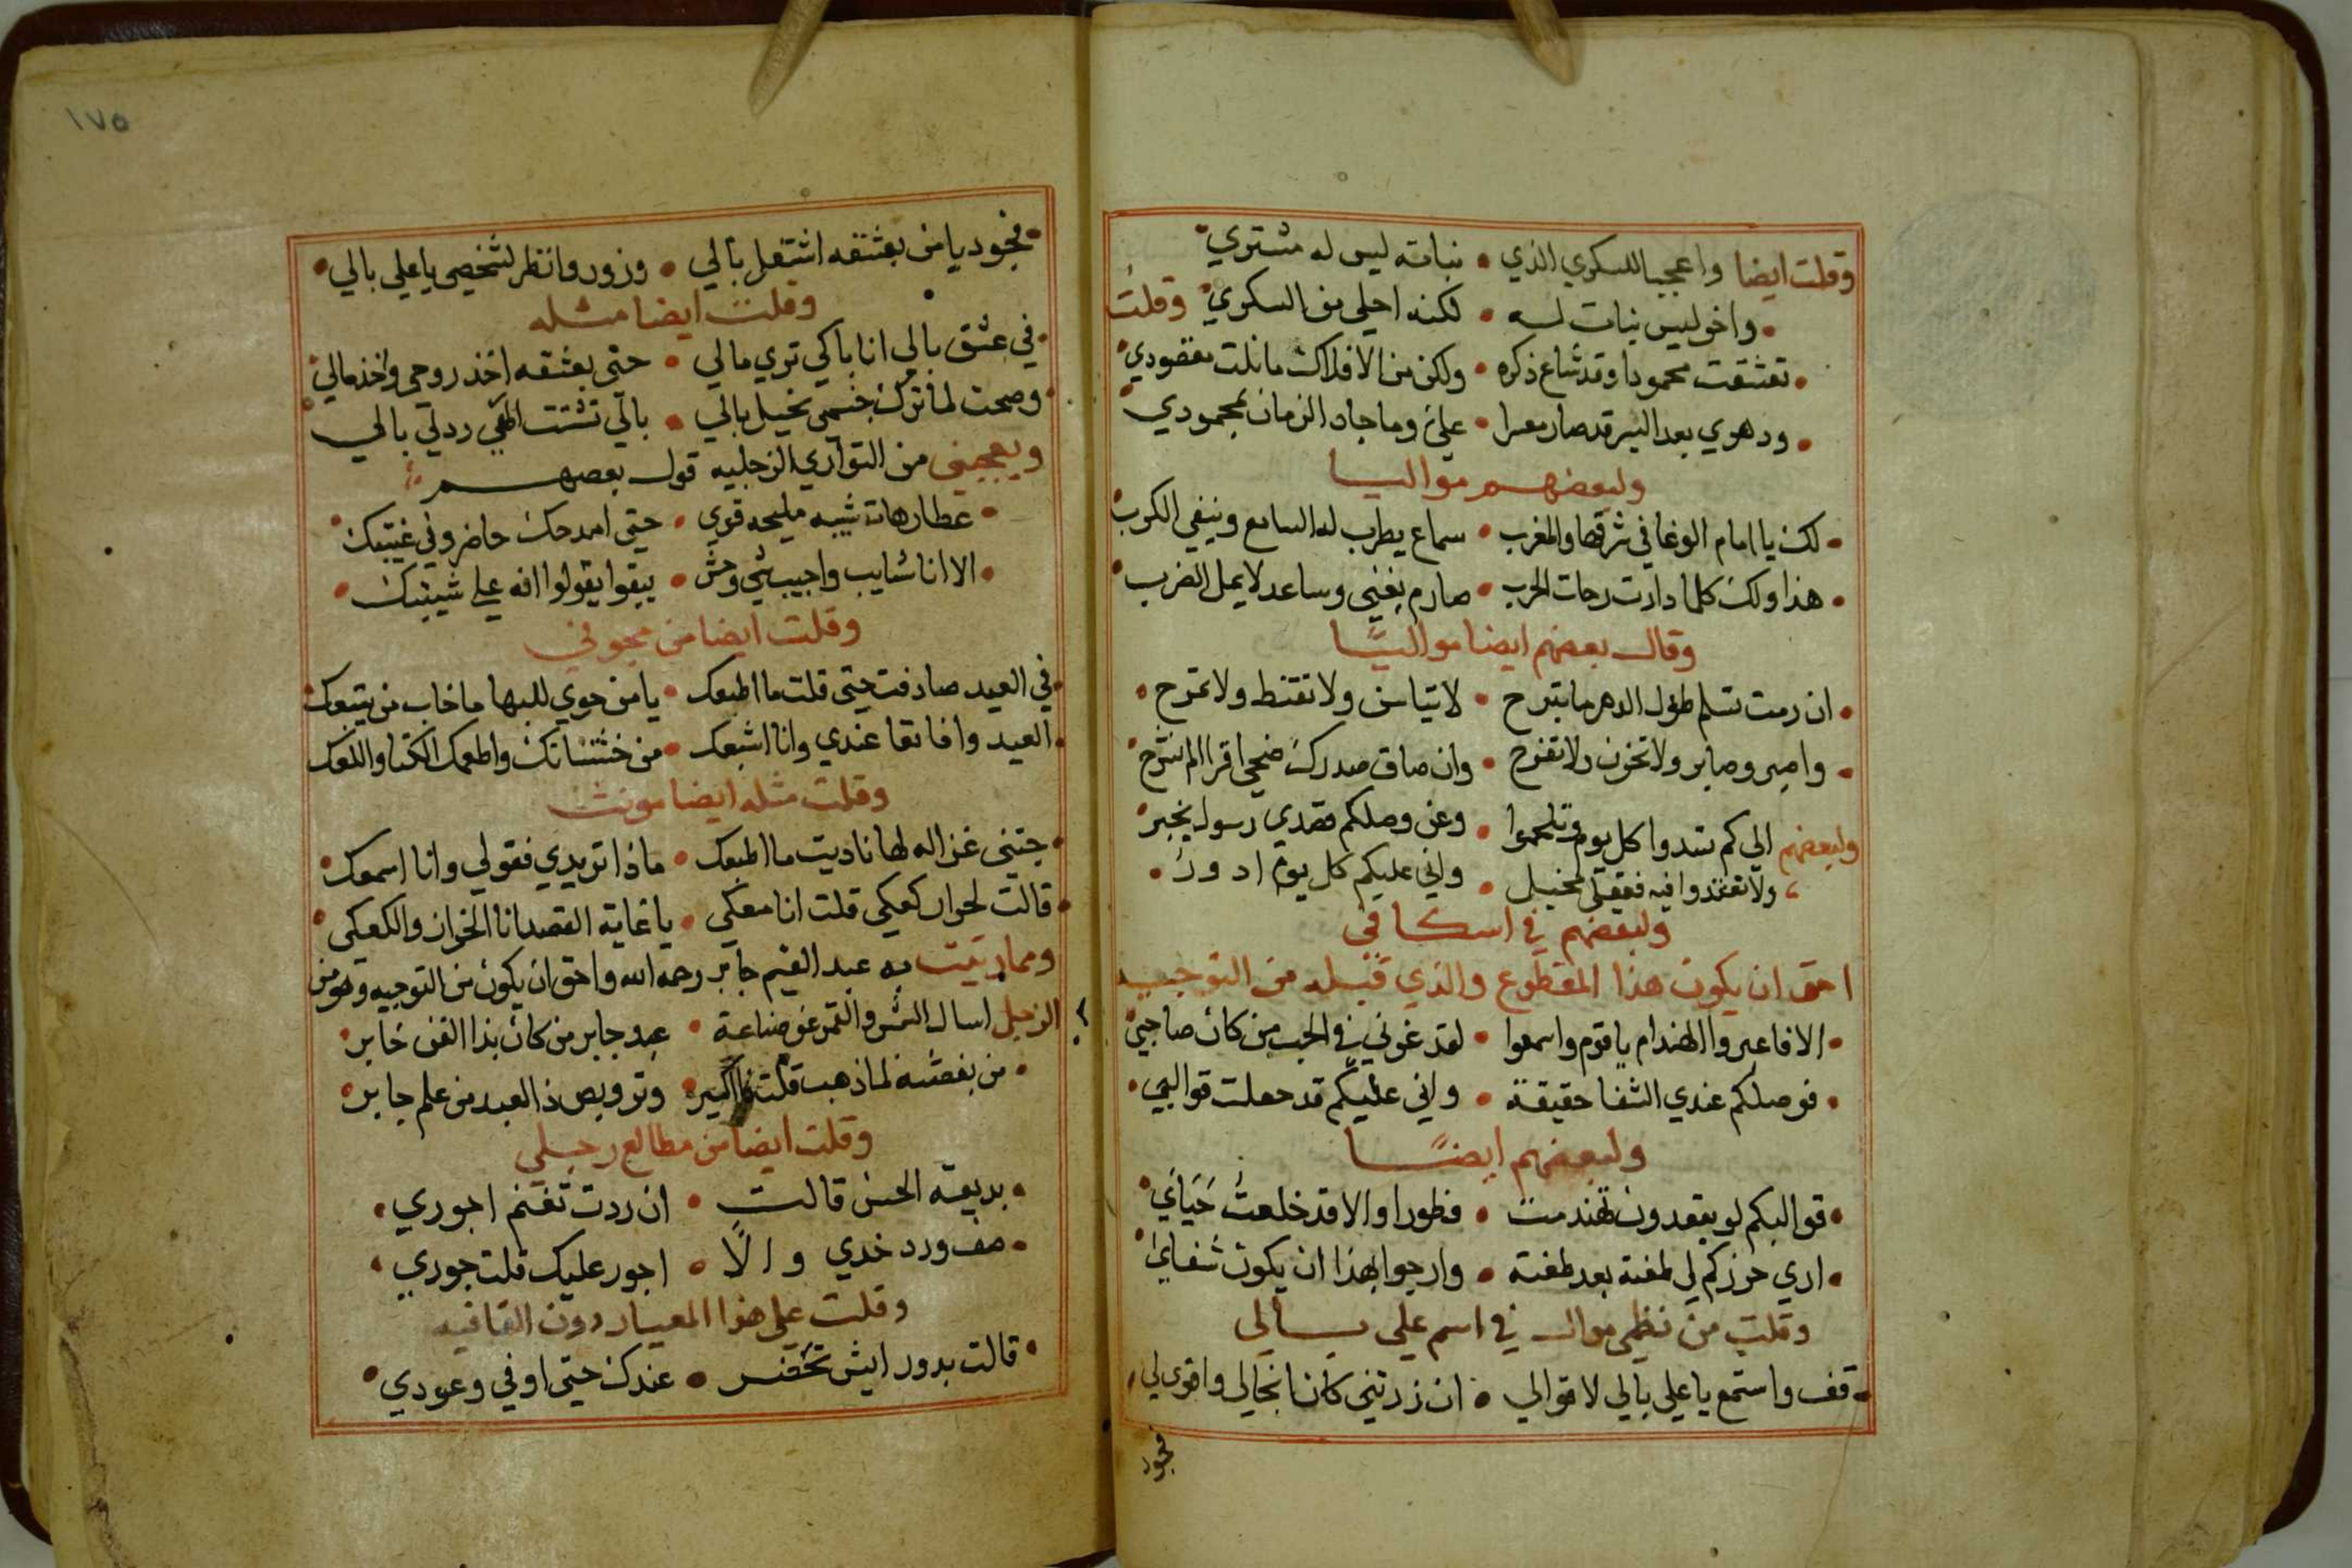 وقلت ايضا واعجبا للسكري الذي • نباته ليس له مشتري
• واخر ليس نبات له • لكنه احلى من السكري وقلت
• تعشقت محمودا وقد شاع ذكره • ولكن من الافلاك ما نلت مقصودي
• ودهري بعد اليسر قد صار معسرا • علي وما جاد الزمان لمحمودي
ولبعضهم مواليا
• لك يا امام الوغا في شرقها والمغرب • سماع يطرب له السامع وينفي الكرب
• هذا ولك كلما دارت رحات الحرب • صارم يغني وساعد لا يمل الضرب
وقال بعضهم ايضا مواليا
• ان رمت تسلم طول الدهر ما تبرح • لا تياس ولا تقنط ولا تمرح
• واصبر وصابر ولا تحزن ولا تفرح • وان ضاق صدرك ضحى اقرا الم نشرح
ولبعضهم الى كم تسدوا كل يوم وتلحموا • وعن وصلكم قصدي رسول يخبر
ولا تقتدوا فيه • واني عليكم كل يوم ادور
ولبعضهم في اسكافي
احق ان يكون هذا المقطوع والذي قبله من التوجيه
• الا فاعبروا الهندام يا قوم واسمعوا • لقد غرني في الحب من كان صاحبي
• فوصلكم عندي الشفا حقيقة • واني عليكم قد جعلت قوالبي
ولبعضهم ايضا
• قوالبكم لو يقعدون تهندمت • فطورا والا قد خلعت حياتي
• اري حرزكم لي لفتة بعد لفتة • وارجوا بهذا ان يكون شفائي
وقلت من نظمي موال في اسم علي بالي
• قف واستمع يا علي بالي لاقوالي • ان زرتني كان انجالي واقوى لي
فجود
١٧٥
• فجود يا من بعشقه اشتغل بالي • وزور وانظر لشخصي يا علي بالي
وقلت ايضا مثله
• في عشق بالي انا باكي تري مالي • حتى بعشقه اخذ روحي واخذ مالي
وصحت لما ترك جسمي نحيل بالي • بالي تشتت الهي رد لي بالي
ويعجبني من التواري الزجليه قول بعضهم
• عطار هات شيبه مليحه قوي • حتى امدحك حاضر وفي غيبتك
• الا انا شايب واجيب شي وحش • يبقوا يقولوا انه على شيبتك
وقلت ايضا من مجوني
• في العيد صادفت حتى قلت ما اطبعك • يا من حوي للبها ما خاب من يتبعك
• العيد وافا تعا عندي وانا اشبعك • من خشتنانك واطعمك الكنا والكعك
وقلت مثله ايضا مونث
• جتني غزاله لها ناديت ما اطبعك • ماذا تريدي فقولي وانا اسمعك
• قالت لحوار كعكي قلت انا معكي • يا غاية القصد انا الخوان والكعكي
ومما ريت به عبد القيم جابر رحمه الله واحق ان يكون من التوجيه وهو من
الزجل اسال الشمس والقمر عن صناعة • عبد وجابر من كان بذا الفن خابر
• من بفضته لما ذهب قلت • وترويص ذا العبد من علم جابر
وقلت ايضا من مطالع رجلي
• بديعة الحسن قالت • ان ردت تغنم اجوري
• صف ورد خدي والا • اجور عليك قلت جوري
وقلت على هذا المعيار دون القافيه
• قالت بدور ايش تحضر • عندك حتى اوفي وعودي